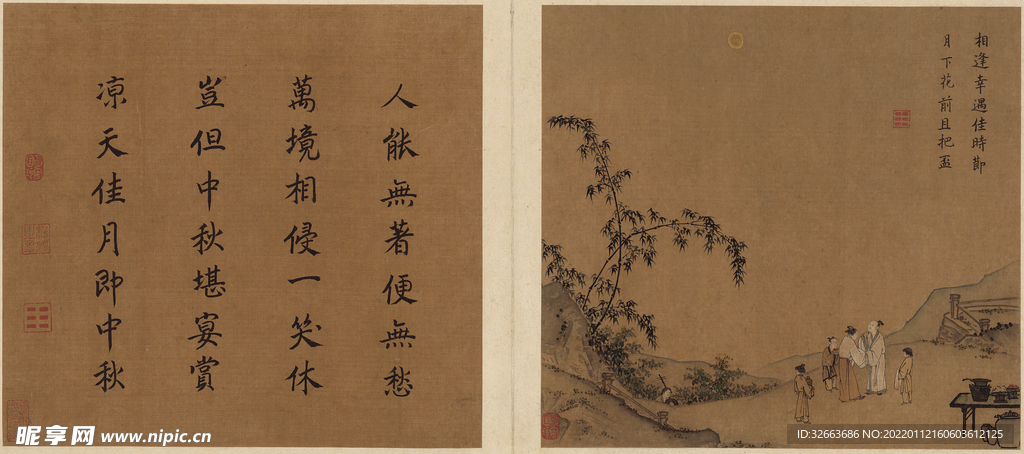 相逢幸遇佳時節
月下花前且把盃
人能無著便無愁
萬境相侵一笑休
豈但中秋堪宴賞
凉天佳月即中秋
昵享网 www.nipic.cn
ID:32663686 NO:20220112160603612125